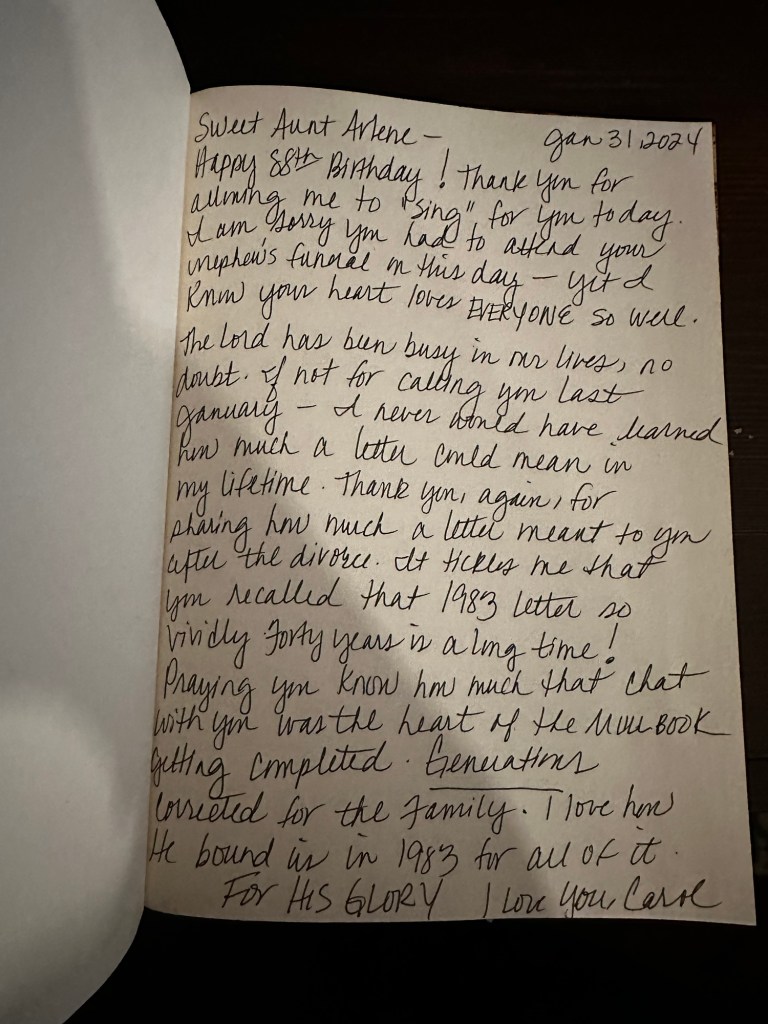 Sweet Aunt Arlene — Jan 31, 2024
Happy 88th Birthday! Thank you for
allowing me to "sing" for you today.
I am sorry you had to attend your
nephew's funeral on this day — yet I
know your heart loves EVERYONE so well.
The Lord has been busy in our lives, no
doubt. If not for calling you last
January — I never would have learned
how much a letter could mean in
my lifetime. Thank you, again, for
sharing how much a letter meant to you
after the divorce. It tickles me that
you recalled that 1983 letter so
vividly Forty years is a long time!
Praying you know how much that chat
with you was the heart of the BOOK
getting completed. Generations
corrected for the Family. I love how
He bound us in 1983 for all of it.
FOR HIS GLORY I Love You Carol